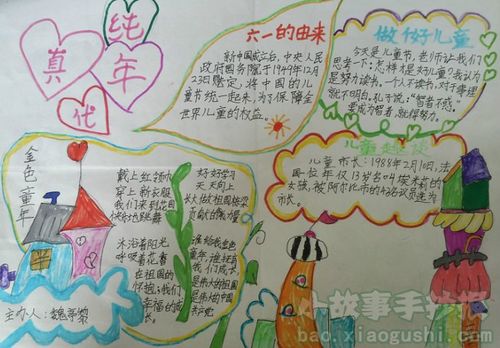 纯
真
年
代
六一的由来
新中国成立后，中央人民
政府国务院于1949年12月
23日规定，将中国的儿
童节统一起来，为了保障全
世界儿童的权益。
做好儿童
今天是儿童节，老师让我们
思考一下：怎样才是好儿童？我认为
是努力读书。一个人不读书，对于事理
就不明白。孔子说："智者不惑。"
要成为智者，就得努力。
儿童趣谈
儿童市长：1988年2月10日，法
国一位年仅13岁名叫
女孩，被阿尔
市长。
金色童年
戴上红领巾
穿上新衣服
我们来到花园
快快地跳舞
沐浴着阳光
呼吸着花香
在祖国的
怀抱，我们
幸福的成
长。
好好学习
天天向上
长大做祖国族
贡献的
谁给我金色
童年，谁培育
我们成长
是伟大的祖
是伟大的中国
共产党
主办人：魏
小故事手抄报
bao.xiaogushi.com